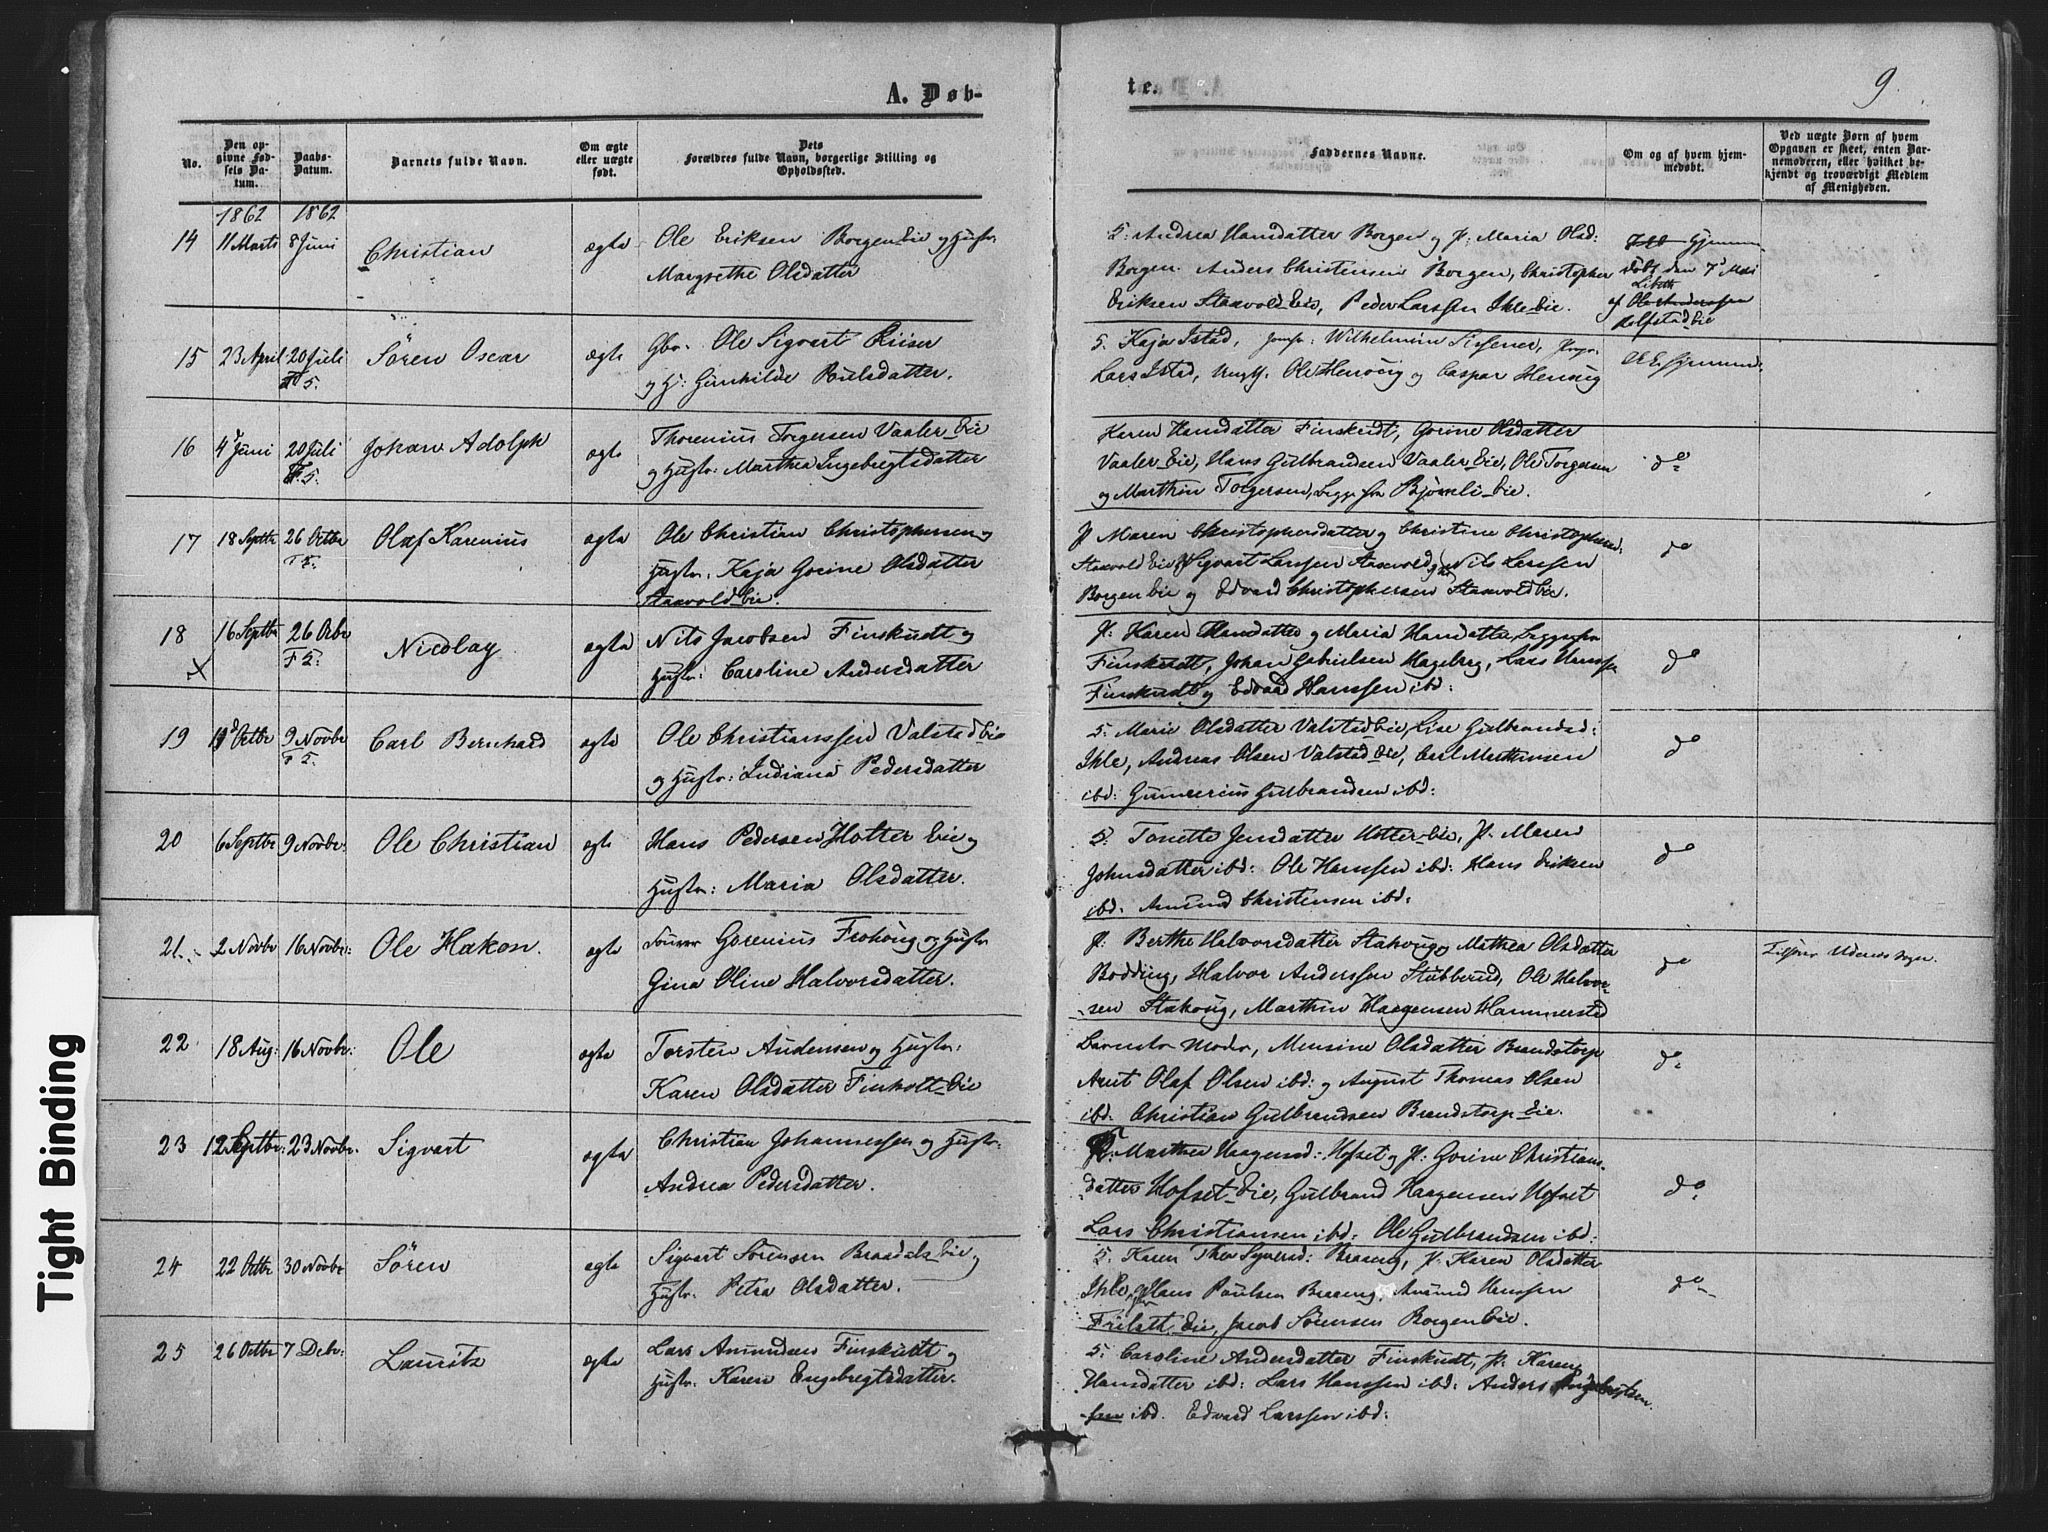 A. Døb-
te.
9.
No.
Den opgivne Fødsels Datum.
Daabs-Datum.
Barnets fulde Navn.
Om ægte eller uægte født.
Dets Forældres fulde Navn, borgerlige Stilling og Opholdssted.
Faddernes Navne.
Om og af hvem hjemmedøbt.
Ved uægte Børn af hvem Opgaven er skeet, enten Barnemoderen, eller hvilket bekjendt og troværdigt Medlem af Menigheden.
1862 1862
14 11 Marts 8 Juni Christian ægte Ole Eriksen Borgen Eie og Hustr:
Margrethe Olsdatter
S: Andrea Hansdatter Borgen og P: Maria Olsd:
Borgen. Anders Christensen Borgen, Christopher
Eriksen Staavold Eie, Peder Larssen Ihle Eie.
Hjemme
døbt den 7d Mai
af
15 23 April 20 Juli Sören Oscar ægte Gbr. Ole Sigvart Riiser
og H: Gunhilde Pulsdatter.
S. Kaja Istad, Jomfr: Wilhelmine
Lars Istad, Ungk. Ole Herwig og Caspar Herwig
16 4d Juni 20 Juli Johan Adolph ægte Thorenius Torgersen Vaaler Eie
og Hustr: Marthea Ingebregtsdatter
Karen Hansdatter Finskudt, Gorine Olsdatter
Vaaler Eie, Hans Gulbrandsen Vaaler Eie, Ole Torgersen
og Marthin Torgersen, begge fra Bjørnli Eie.
do
17 18 Septbr 26 Octbr Olaf Karenius ægte Ole Christian Christophersen og
Hustr: Kaja Gorine Olsdatter
Staavold Eie.
P Maren Christophersdatter og Christine Christophersd:
Staavold Eie, Sigvart Larssen Staavold, Nils Larssen
Borgen Eie og Edvard Christophersen Staavold Eie.
do
18 16 Septbr 26 Octbr Nicolay ægte Nils Jacobsen Finskudt og
Hustr: Caroline Andersdatter
P: Karen Hansdatter og Maria Hansdatter, begge fra
Finskudt, Johan Gabrielsen Hageberg, Lars
Finskudt og Edvard Hanssen ibd:
do
19 Octbr 9 Novbr Carl Bernhard ægte Ole Christianssen Valstad Eie
og Hustr: Indiana Pedersdatter
S. Marie Olsdatter Valstad Eie, Lise Gulbrandsd:
Ihle, Andreas Olsen Valstad Eie, Carl Mathiesen
ibd: Gunnerius Gulbrandsen ibd:
do
20 6 Septbr 9 Novbr. Ole Christian ægte Hans Pedersen Holter Eie og
Hustr: Maria Olsdatter.
S: Tonette Jensdatter Holter Eie, P. Maren
Johnsdatter ibd: Ole Hanssen ibd: Hans Eriksen
ibd. Amund Christensen ibd:
do
21. 2 Novbr 16 Novbr: Ole Hakon. ægte Gorenius Frohoug og Hustr
Gina Oline Halvorsdatter.
P: Berthe Halvorsdatter Stakoug, Mathea Olsdatter
Bodding, Halvor Anderssen Stubberud, Ole Halvor-
sen Stakoug, Marthin Haagensen Hammerstad
do
22 18 Aug: 16 Novbr: Ole ægte Torsten Audensen og Hustr:
Karen Olsdatter Finholt Eie
Barnets Moder, Mensine Olsdatter Brandstorp
Olaf Olsen ibd: og August Thomas Olsen
ibd: Christian Gulbrandsen Brandstorp Eie.
do
23 12 Septbr: 23 Novbr. Sigvart ægte Christian Johannessen og Hustr:
Andrea Pedersdatter.
Marthea Haagensd: Hofset og P: Gorine Christians-
datter Hofset Eie, Gulbrand Haagensen Hofset
Lars Christiansen ibd: Ole Gulbrandsen ibd:
do
24 22 Octbr 30 Novbr Sören ægte Sigvart Sörensen Eie og
Hustr. Petra Olsdatter.
S. Karen Thea Syversd: Braang, P. Karen Olsdatter
Ihle, Hans Paulsen Braang, Amund Hanssen
Frilseth Eie, Jacob Sörensen Borgen Eie.
do
25 26 Octbr 7 Debr: Lauritz ægte Lars Amundsen Finskudt og
Hustr: Karen Engebregtsdatter.
S: Caroline Andersdatter Finskudt, P. Karen
Hansdatter ibd: Lars Hanssen ibd: Anders
ibd. Edvard Larssen ibd:
Tight Binding